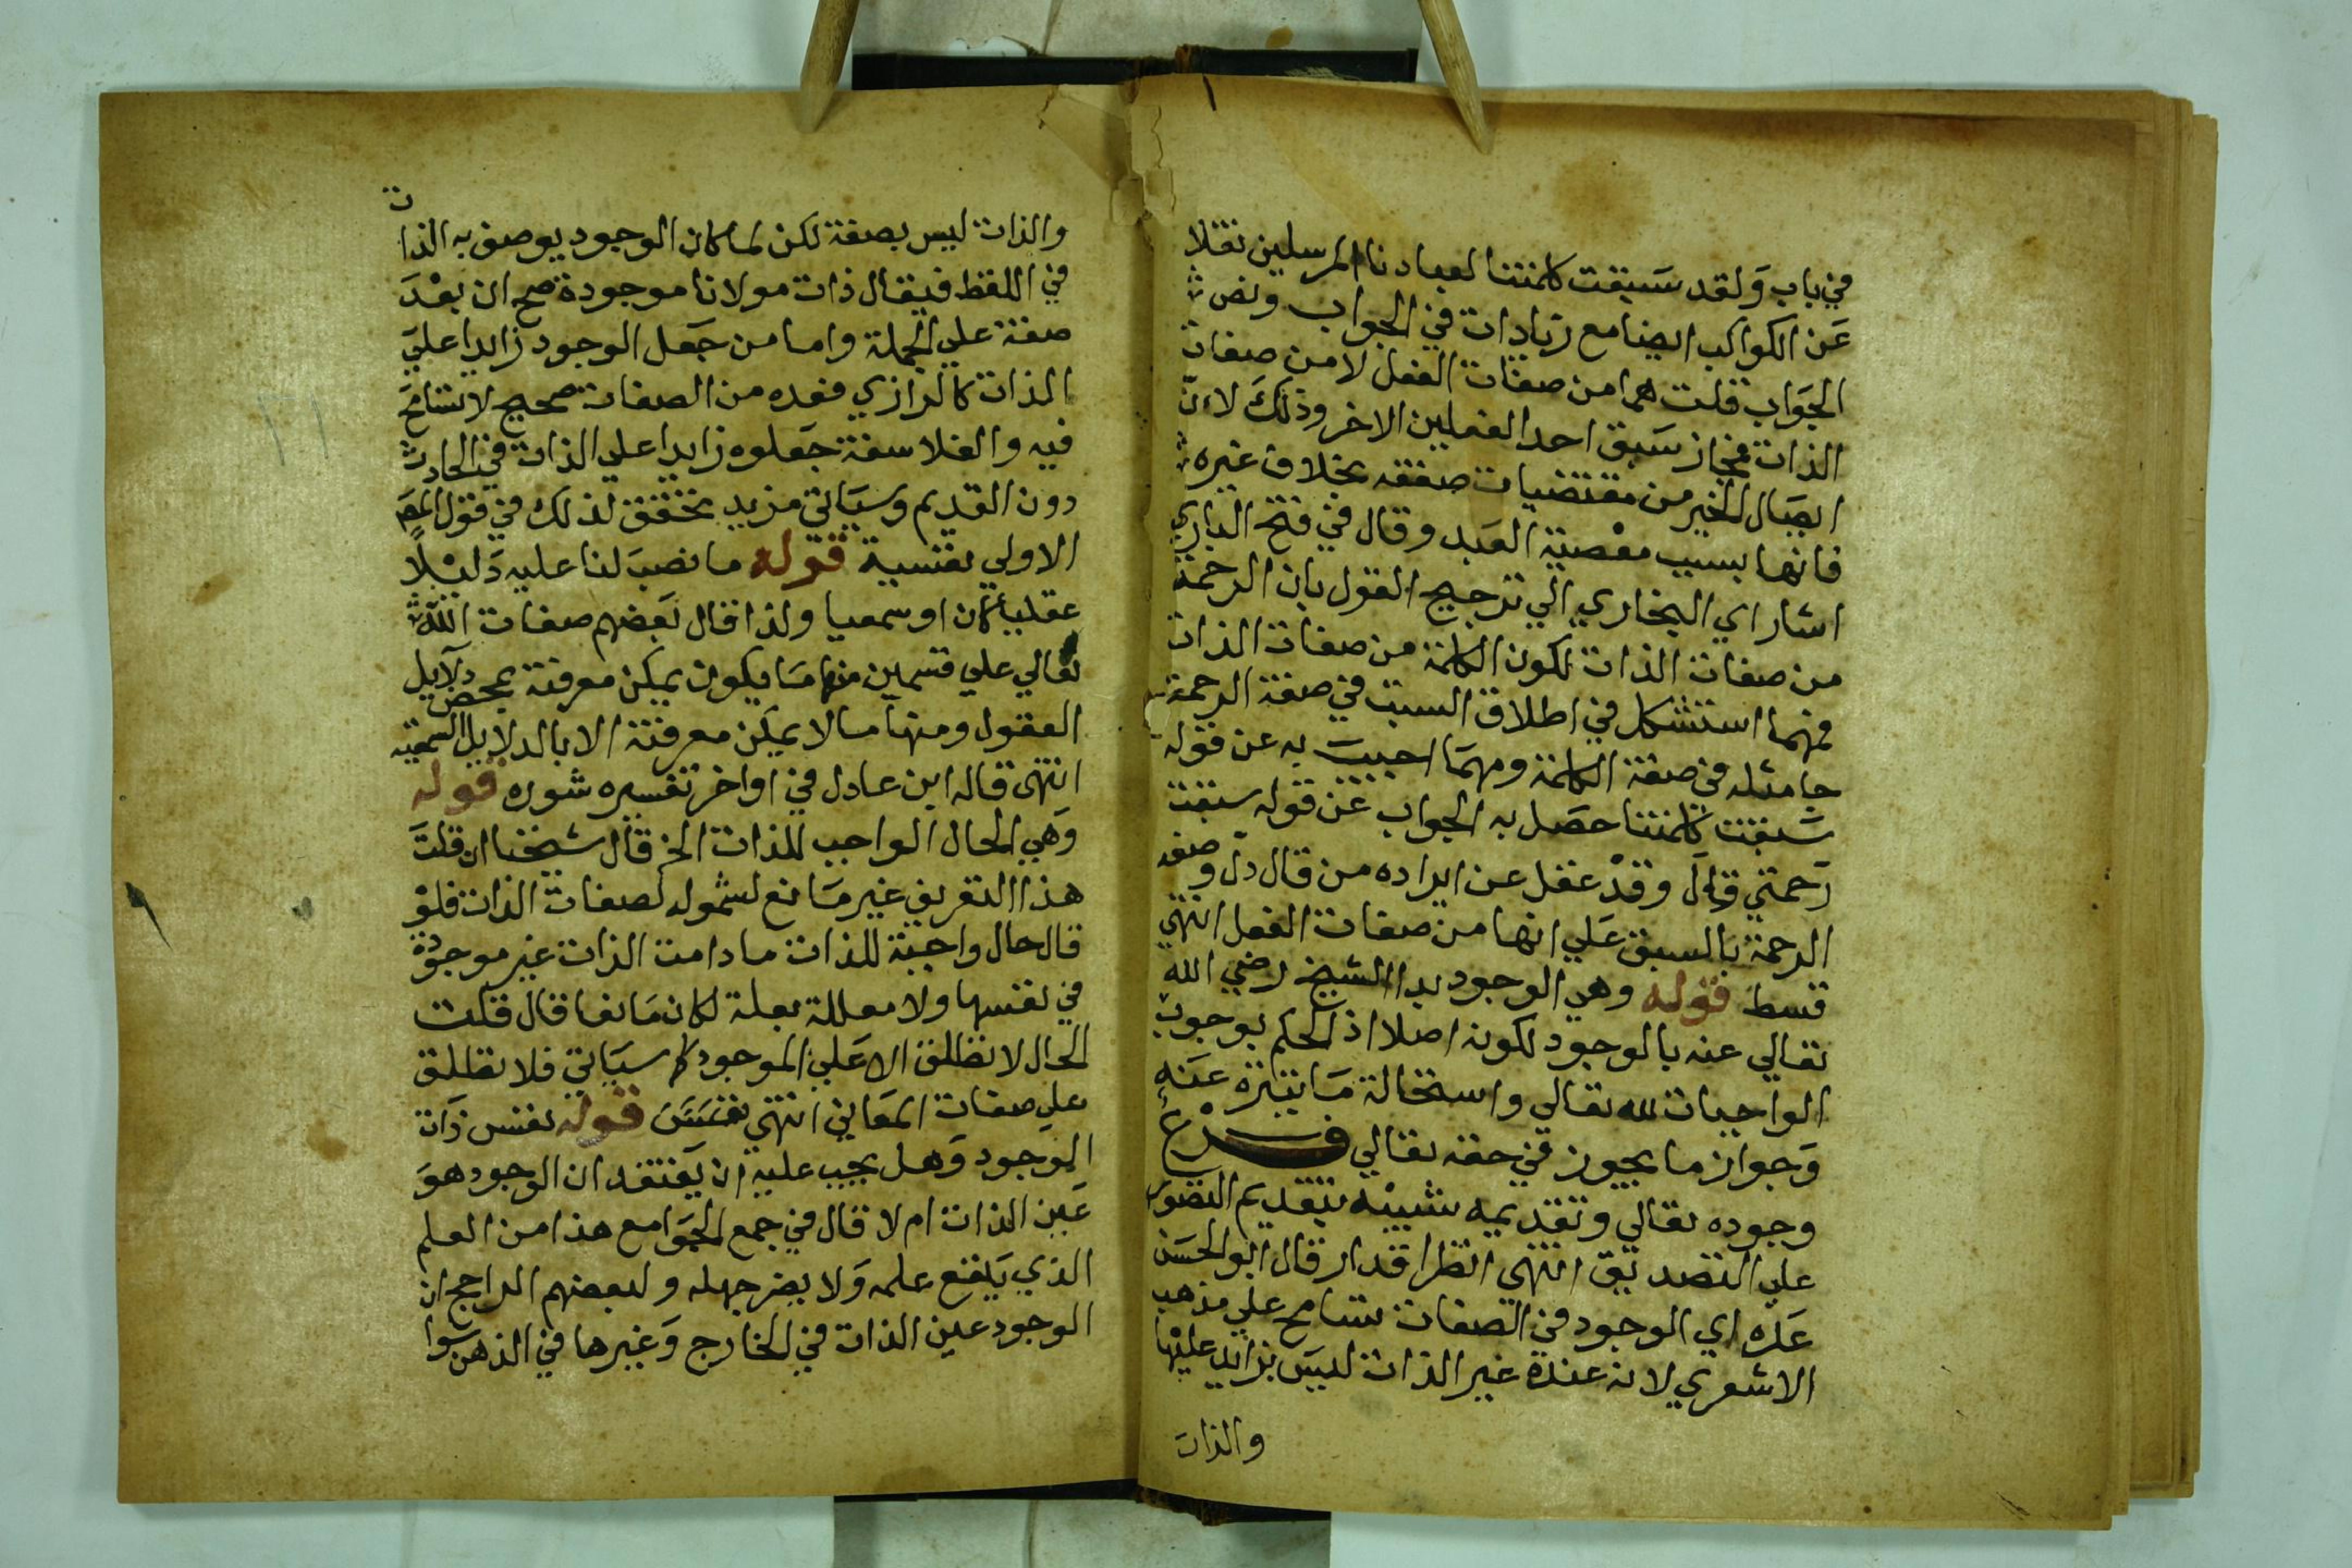 في باب ولقد سبقت كلمتنا لعبادنا المرسلين نقلا
عن الكواكب ايضا مع زيادات في الجواب ونص
الجواب قلت هما من صفات الفعل لا من صفات
الذات فجاز سبق احد الفعلين الاخر وذلك لان
ايصال الخير من مقتضيات صفته بخلاف غيره
فانها بسبب معصية العبد وقال في فتح الباري
اشار اي البخاري الي ترجيح القول بان الرحمة
من صفات الذات لكون الكلمة من صفات الذات
فمهما استشكل في اطلاق السبق في صفة الرحمة
جا مثله في صفة الكلمة ومهما اجيب به عن قوله
سبقت كلمتنا حصل به الجواب عن قوله سبقت
رحمتي قال وقد غفل عن ايراده من قال دل وصف
الرحمة بالسبق علي انها من صفات الفعل انتهي
قسط قوله وهي الوجود بدا الشيخ رضي الله
تعالي عنه بالوجود لكونه اصلا اذ الحكم بوجوب
الواجبات لله تعالي واستحالة ما يتنزه عنه
وجواز ما يجوز في حقه تعالي فرع
وجوده تعالي وتقديمه شبيه بتقديم التصور
علي التصديق انتهي انظر اقدار قال ابو الحسن
عده اي الوجود في الصفات تسامح علي مذهب
الاشعري لانه عنده غير الذات ليس بزايد عليها
والذات
والذات ليس بصفة لكن لما كان الوجود يوصف به الذات
في اللفظ فيقال ذات مولانا موجودة صح ان يعد
صفة علي الجملة واما من جعل الوجود زايدا علي
الذات كالرازي فعده من الصفات صحيح لا تسامح
فيه والفلاسفة جعلوه زايدا علي الذات في الحادث
دون القديم وسياتي مزيد تحقيق لذلك في قول المص
الاولي نفسية قوله ما نصب لنا عليه دليلا
عقليا كان او سمعيا ولذا قال بعضهم صفات الله
تعالي علي قسمين منها ما يكون يمكن معرفته بمحض دلايل
العقول ومنها ما لا يمكن معرفته الا بالدلايل السمعية
انتهي قاله ابن عادل في اواخر تفسيره شوره قوله
وهي الحال الواجب للذات الخ قال شيخنا ان قلت
هذا التعريف غير مانع لشموله لصفات الذات فلو
قال حال واجبة للذات ما دامت الذات غير موجودة
في نفسها ولا معللة بعلة لكان مانعا قال قلت
الحال لا تطلق الا علي الموجود كما سياتي فلا تطلق
علي صفات المعاني انتهي قوله نفس ذات
الوجود وهل يجب عليه ان يعتقد ان الوجود هو
عين الذات ام لا قال في جمع الجوامع هذا من العلم
الذي ينفع علمه ولا يضر جهله ولبعضهم الراجح ان
الوجود عين الذات في الخارج وغيرها في الذهن سوا